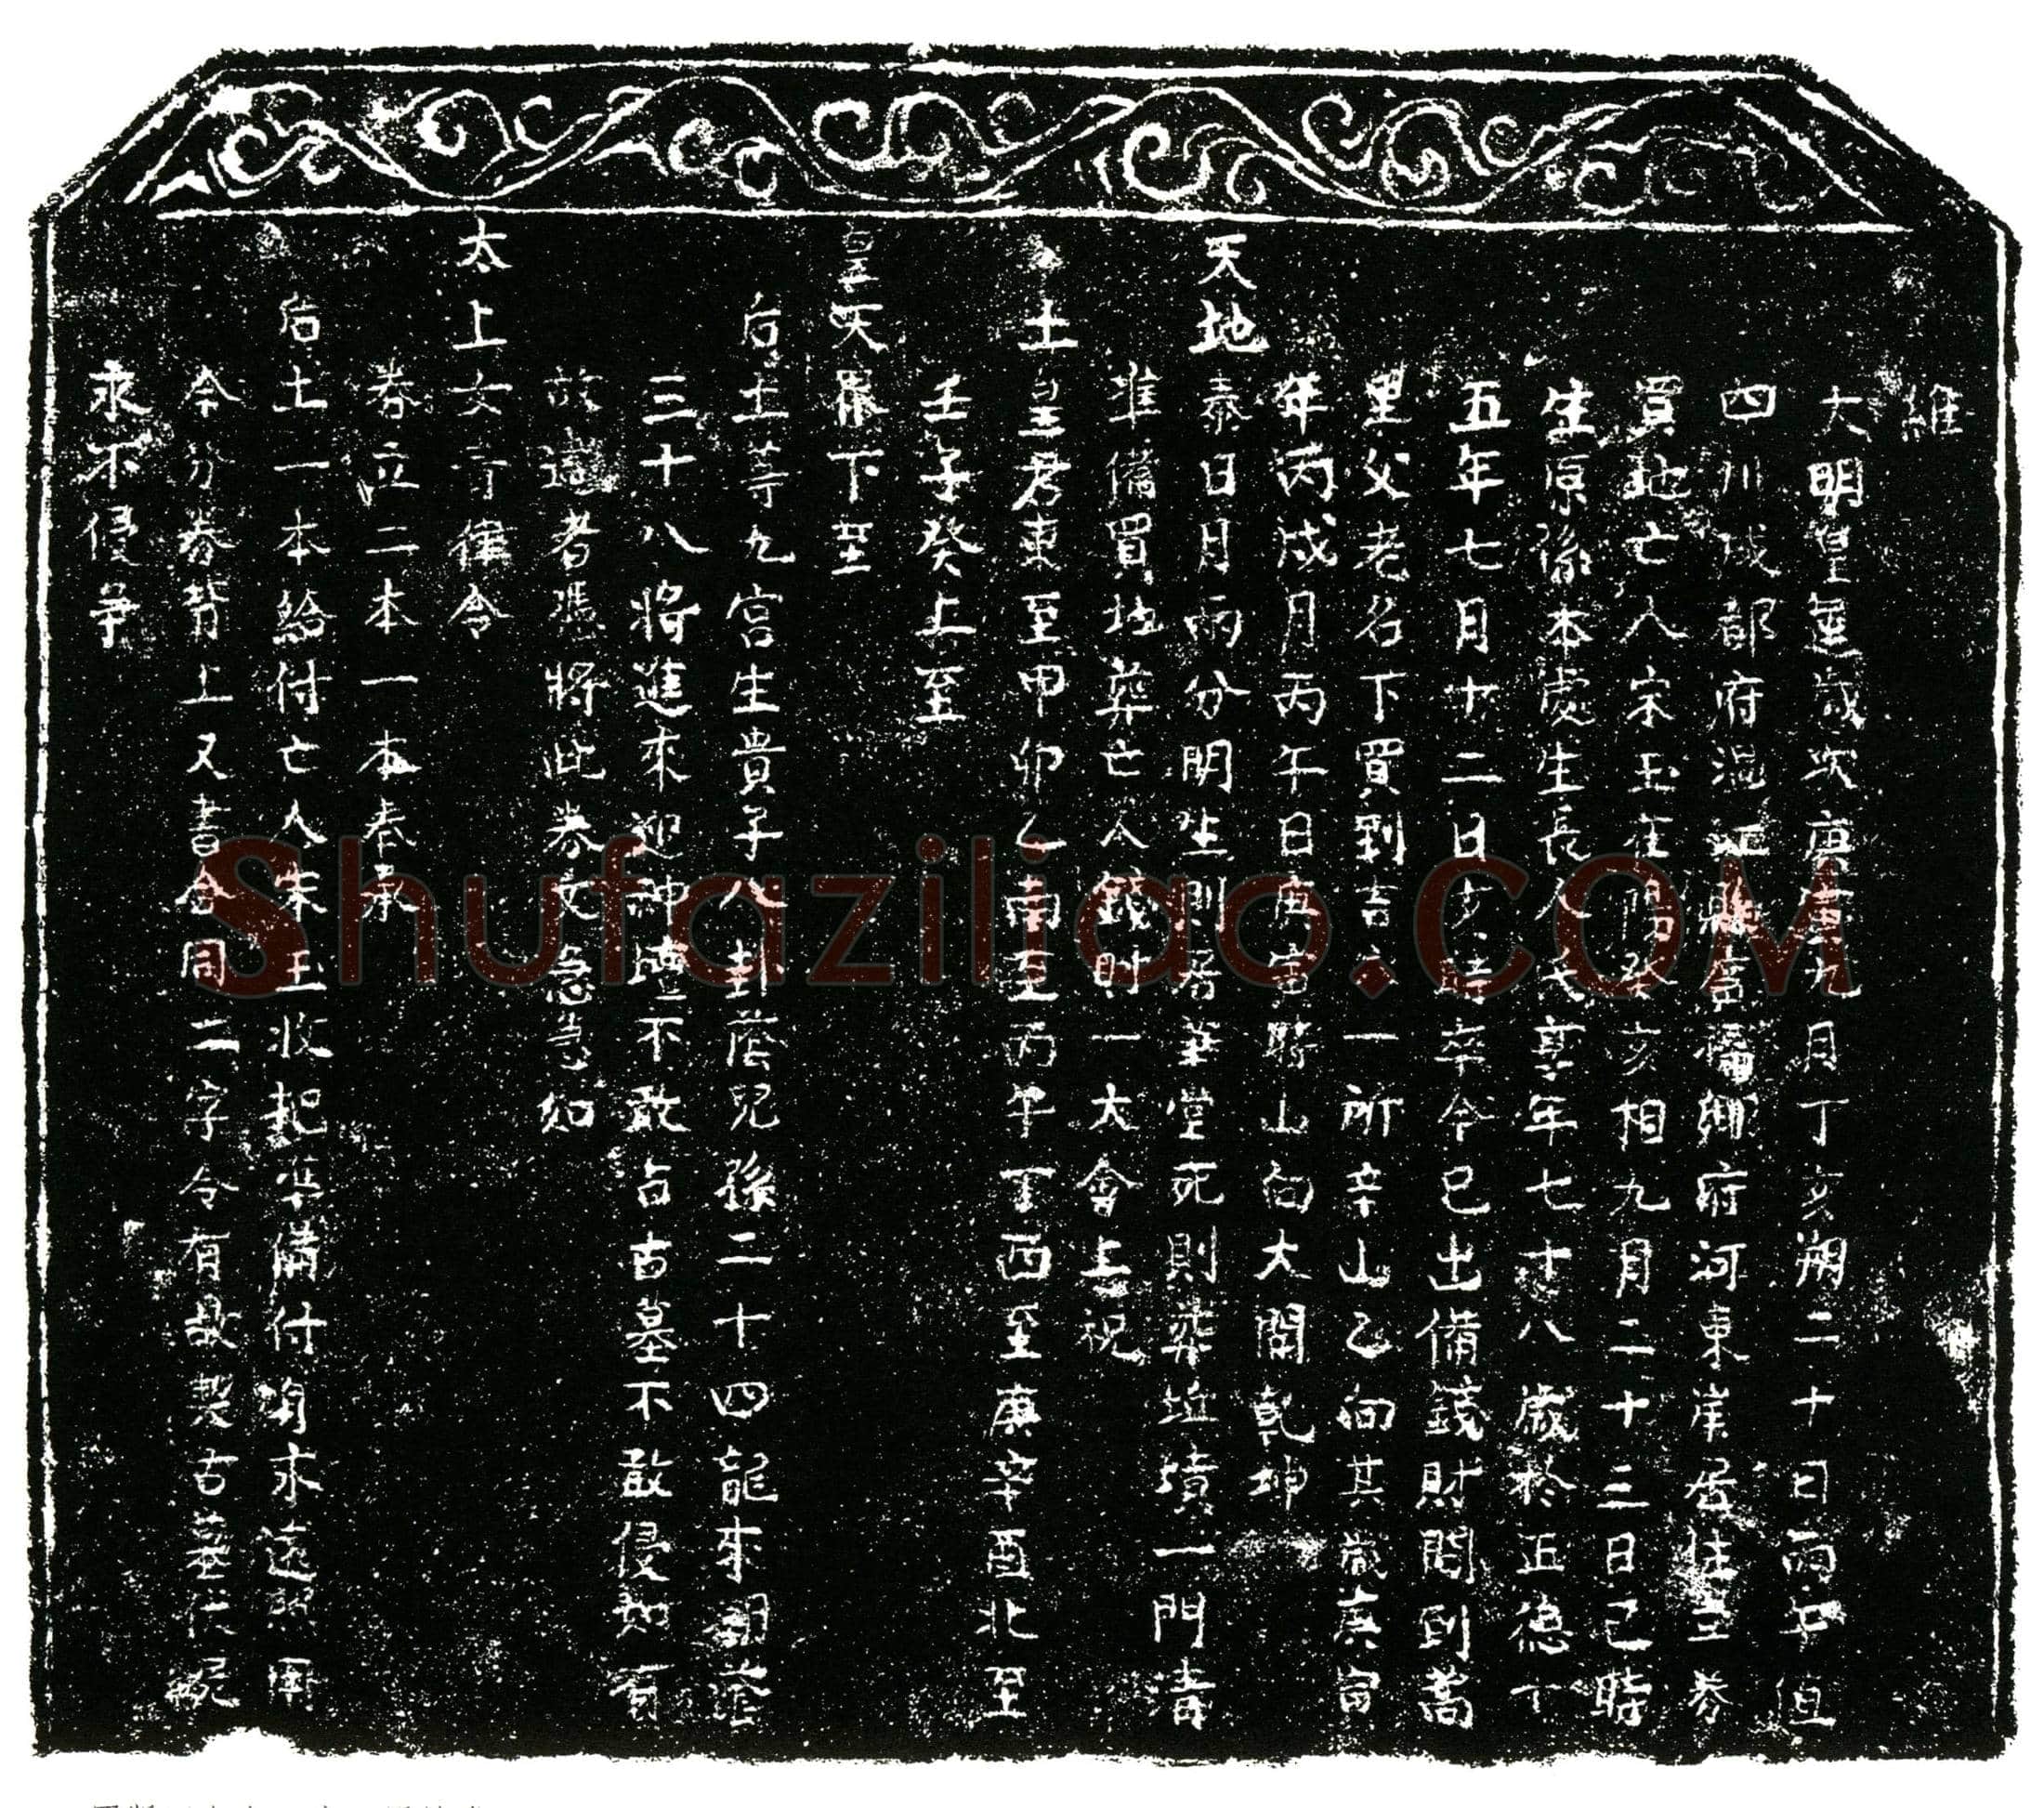 維
大明皇運歲次庚寅九月丁亥朔二十日丙午但
四川成都府溫江縣宣福鄉府河東岸居住立券
買地亡人宋玉在陽癸亥相九月二十三日己時
生原係本處生長人氏享年七十八歲於正德丁
五年七月十二日少時卒今已出備錢財問到蒿
里父老名下買到吉穴一所辛山乙向其歲庚寅
年丙戌月丙午日庚寅時山向大開乾坤
天地泰日月兩分明生則居華堂死則葬坵墳一門清
準備買地葬亡人錢財一大會上祝
土皇君東至甲卯乙南至丙午丁西至庚辛酉北至
壬子癸上至
皇天暴下至
后土等九宮生貴子八卦蔭兒孫二十四龍來朝蔭
三十八將進來迎神墳不敢占古墓不敢侵如有
故違者憑將此券文急急如
太上女青律令
券立二本一本奉承
后土一本給付亡人宋玉收把準備付身永遠照用
今分券背上又書合同二字令有故契古墓伏屍
永不侵爭
Shufaziliao.COM